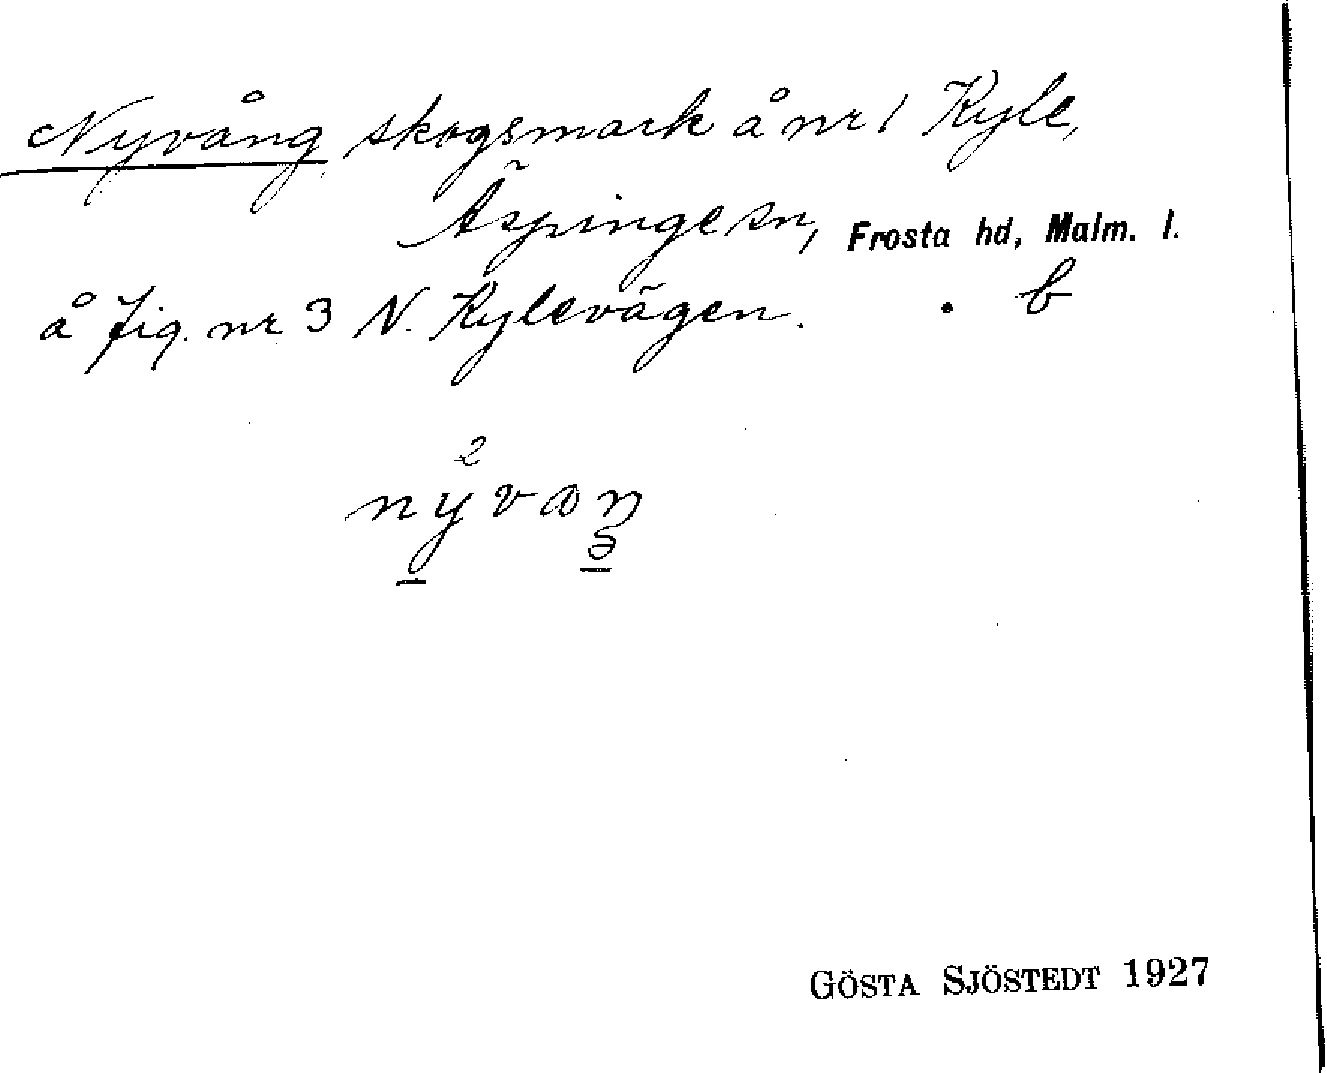 Nyvång skogsmark å nr 1 Kyle,
Äspinge sn, Frosta hd, Malm. l.
å fig. nr 3 N. Kylevägen. . b
2
nyvaŋ
GÖSTA SJÖSTEDT 1927